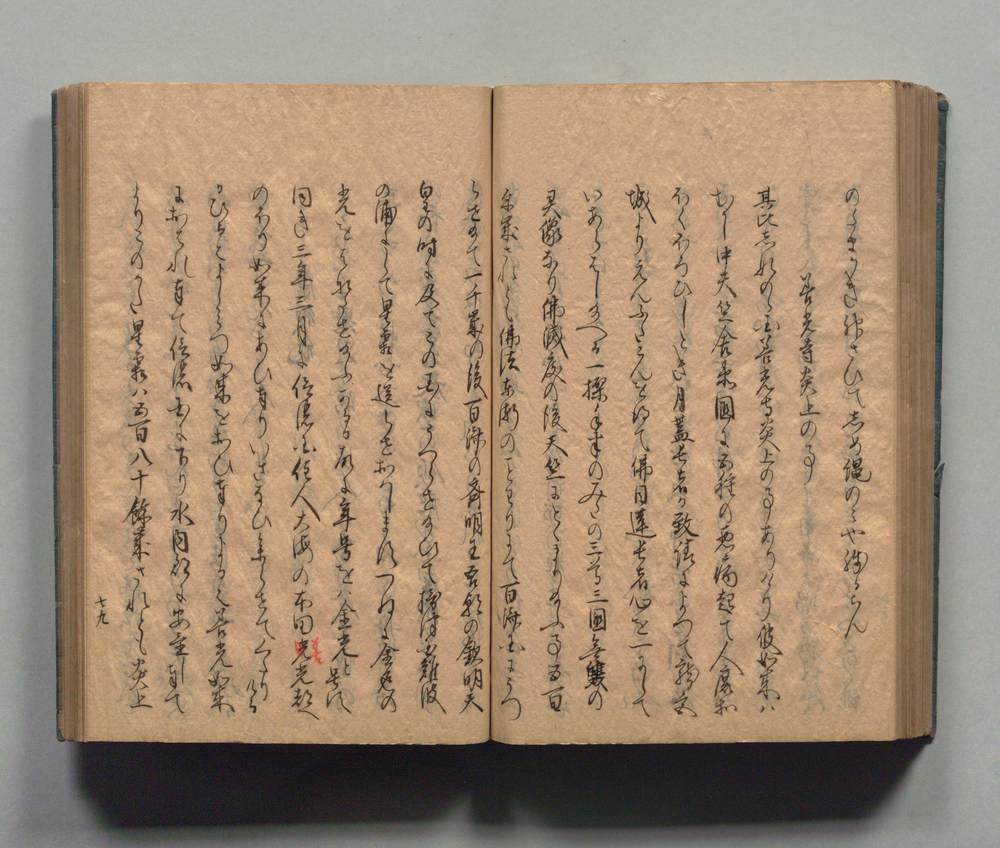 のうまうき神さひてしめ縄のミや残らん
善光寺炎上の事
其比しなのゝ国善光寺炎上の事ありけり彼如来ハ
むかし中天竺舎衛国に五種の悪病起て人庶おほ
くほろひしとき月蓋長者か致請によつて龍宮
城よりえんふたこんをえて佛目連長者心を一にして
いあらはしたまへる一擽手半のみたの三尊三国無雙の
霊像なり佛滅度の後天竺にとゝまりたまふ事五百
余歳されとも佛法東漸のことわりにて百済国にうつ
らせたまて一千歳の後百済の斉明王吾朝の欽明天
皇の時に及てこの国にうつらせたまひて摂津国難波
の浦にして星霜を送らせおハします つねに金色の
光をはなたせたまふあひた年号を金光と号す
同き三年三月に信濃国住人大海の本田善光都へ
のほり如来にあひ奉りいさなひまいらせてくたり
ひるハよしみつ如来をおひ奉りよるハ善光如来
におはれ奉て信濃国に下り水内郡に安置して
よりこのかた星霜八五百八十餘歳されとも炎上
七九